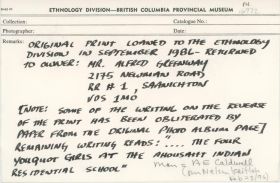 ETHNOLOGY DIVISION—BRITISH COLUMBIA PROVINCIAL MUSEUM
PN
Collection: Catalogue No.:
Photographer: Date:
Remarks: ORIGINAL PRINT LOANED TO THE ETHNOLOGY
DIVISION IN SEPTEMBER 1982 - RETURNED
TO OWNER: MR. ALFRED GREENWAY
2175 NEWMAN ROAD
RR # 1, SAANICHTON
V0S 1M0
[NOTE: SOME OF THE WRITING ON THE REVERSE
OF THE PRINT HAS BEEN OBLITERATED BY
PAPER FROM THE ORIGINAL PHOTO ALBUM PAGE]
REMAINING WRITING READS: ".... THE FOUR
YOUQUOT GIRLS AT THE AHOUSAHT INDIAN
RESIDENTIAL SCHOOL"
man = AE Caldwell